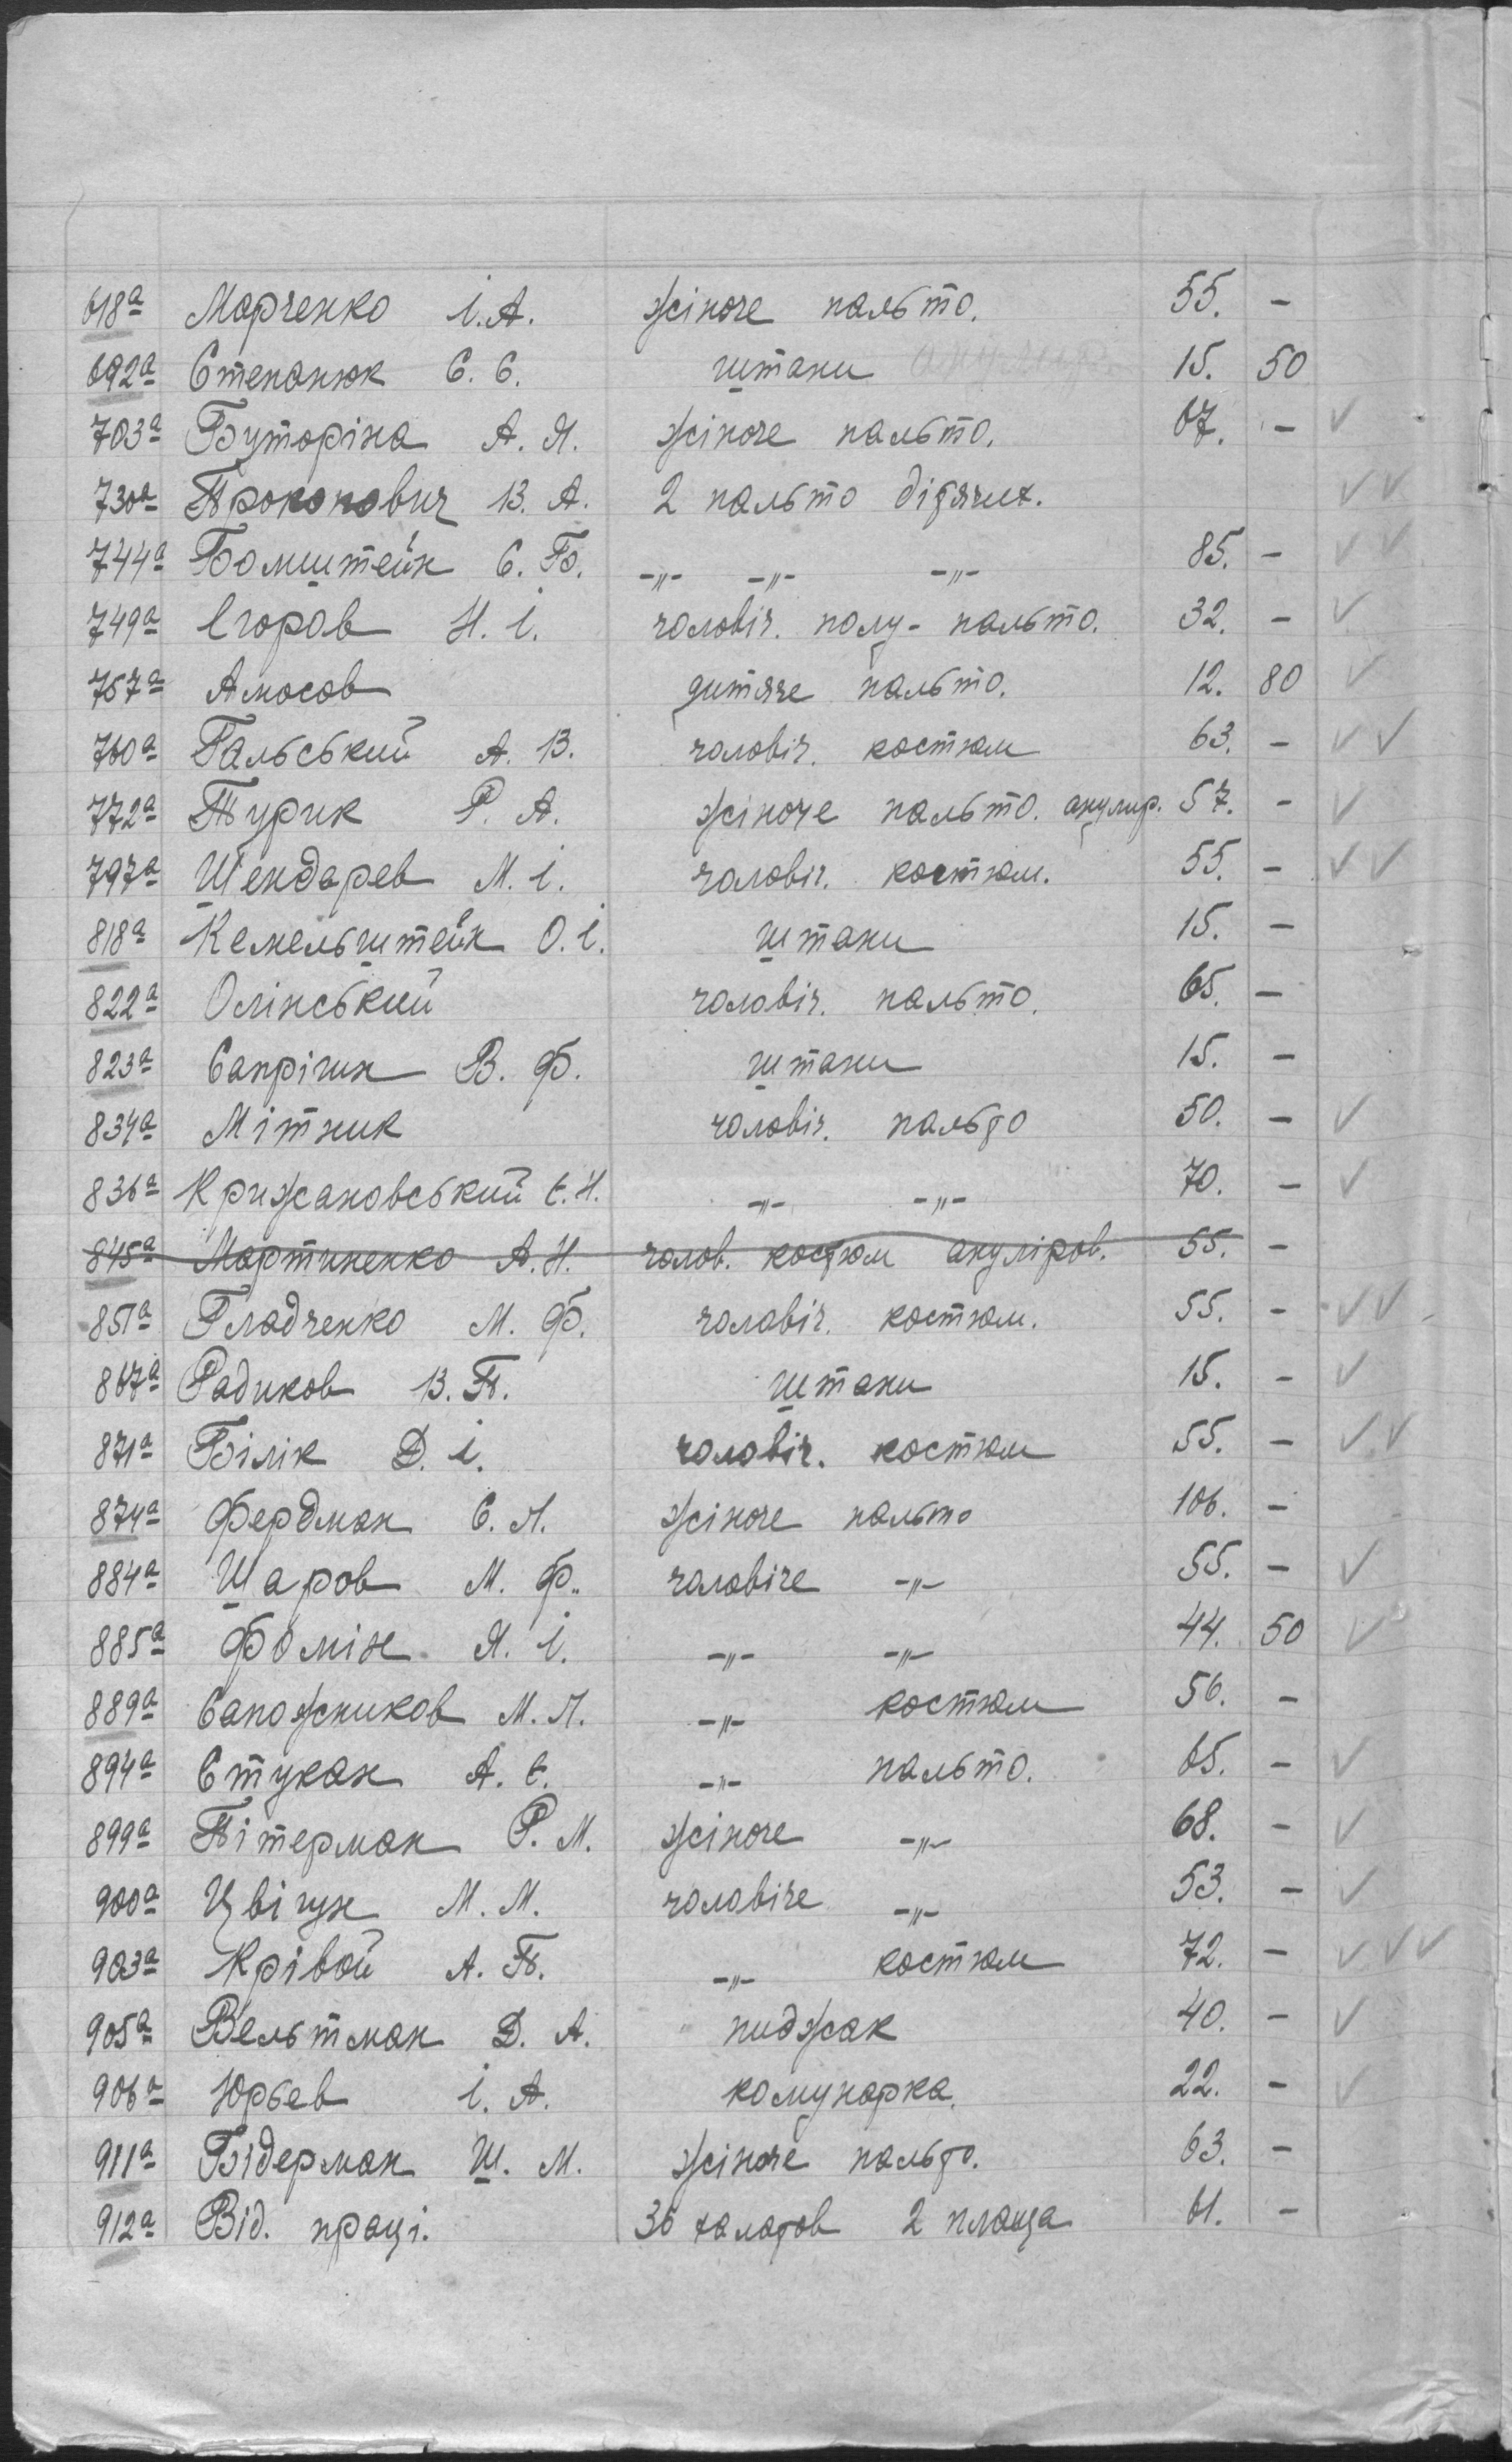 618а Марченко І. А. жіноче пальто. 55. -
692а Степанюк С. С. штани 15. 50
703а Буторіна А. Я. жіноче пальто. 67. - ✓
730а Прокопович В. А. 2 пальто дітячих. ✓✓
744а Бомштейн С. Б. -„- -„- -„- 85. - ✓✓
749а Єгоров Н. І. чоловіч. полу-пальто. 32. - ✓
757а Амосов дитяче пальто. 12. 80 ✓
760а Гальський А. В. чоловіч. костюм 63. - ✓✓
772а Турик Р. А. жіноче пальто. анулир. 57. - ✓
797а Шендарев М. І. чоловіч. костюм. 55. - ✓✓
818а Кемельштейн О. І. штани 15. -
822а Олінський чоловіч. пальто. 65. -
823а Сапрігин В. Ф. штани 15. -
834а Мітник чоловіч. пальто 50. - ✓
836а Крижановський Є. Н. -„- -„- 70. - ✓
845а Мартиненко А. Н. чолов. костюм ануліров. 55. -
851а Гладченко М. Ф. чоловіч. костюм. 55. - ✓✓
867а Радиков В. П. штани 15. - ✓
871а Білік Д. І. чоловіч. костюм 55. - ✓✓
874а Фердман С. Л. жіноче пальто 106. -
884а Шаров М. Ф. чоловіче -„- 55. - ✓
885а Фомін Я. І. -„- -„- 44. 50 ✓
889а Сапожников М. Л. -„- костюм 56. -
894а Стукан А. Є. -„- пальто. 65. - ✓
899а Пітерман Р. М. жіноче -„- 68. - ✓
900а Цвігун М. М. чоловіче -„- 53. - ✓
903а Крівой А. П. -„- костюм 72. - ✓✓✓
905а Вельтман Д. А. пиджак 40. - ✓
906а Юрьев І. А. комунарка. 22. - ✓
911а Бідерман Ш. М. жіноче пальто. 63. -
912а Від. праці. 36 халатов 2 плаща 61. -